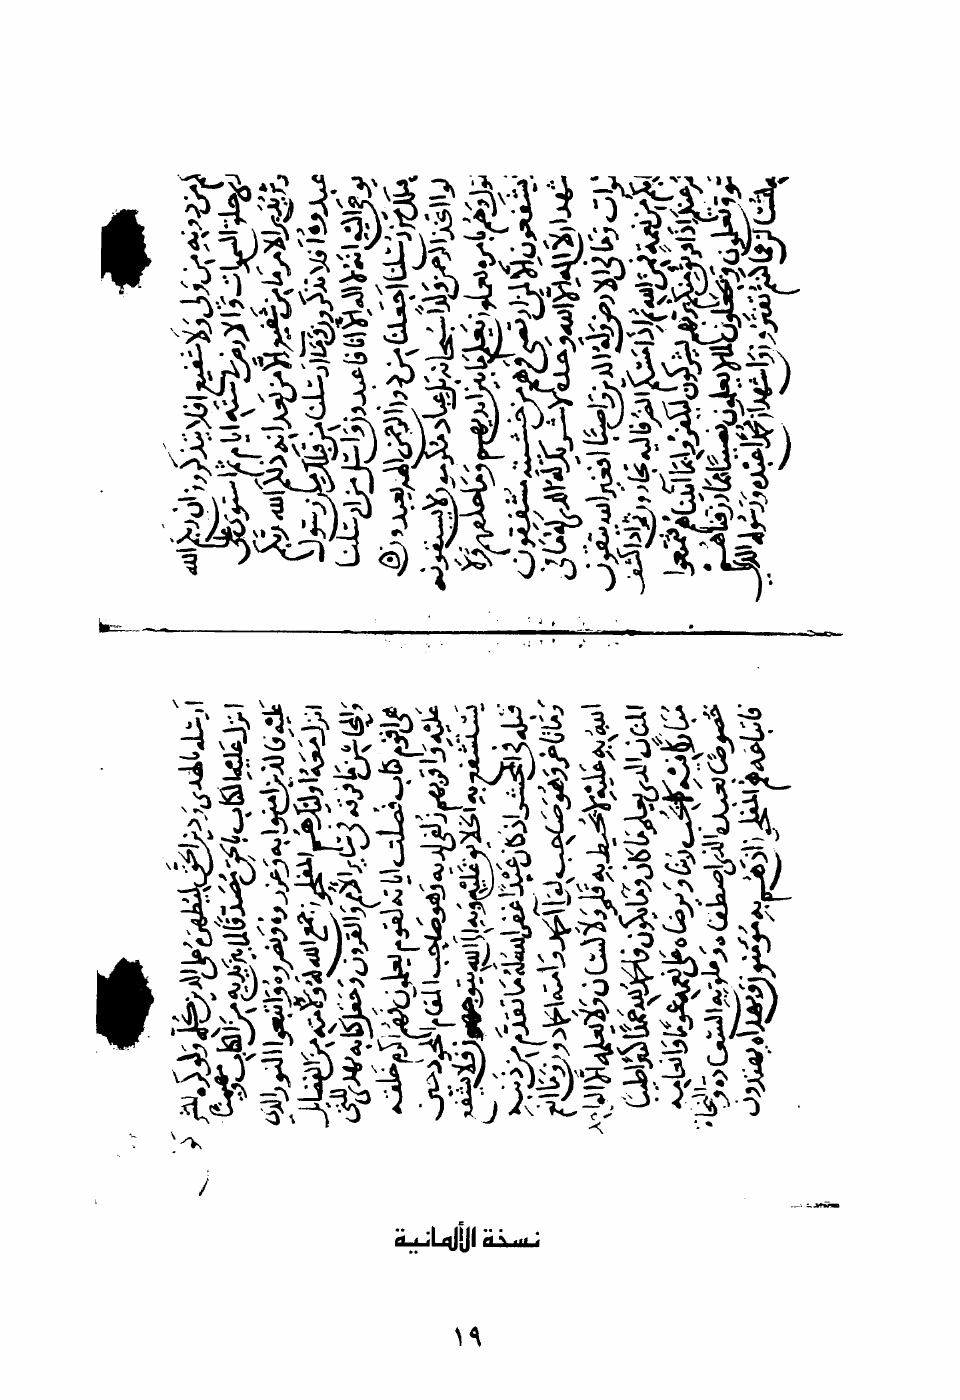 كم من دونه من ولي ولا شفيع افلا تتذكرون ان ربكم الله
خلق السموات والارض في ستة ايام ثم استوى على
يدبر الامر ما من شفيع الا من بعد اذنه ذلكم الله ربكم
عبدوه افلا تذكرون وما ارسلنا من قبلك من رسول
نوحي اليه انه لا اله الا انا فاعبدون واسل من ارسلنا
قبلك من رسلنا اجعلنا من دون الرحمن الهة يعبدون
لوا اتخذ الرحمن ولدا سبحانه بل عباد مكرمون لا يسبقونه
بالقول وهم بامره يعملون يعلم ما بين ايديهم وما خلفهم ولا
يشفعون الا لمن ارتضى وهم من خشيته مشفقون
شهد ان لا اله الا الله وحده لا شريك له الذي له ما في
وات وما في الارض وله الدين واصبا افغير الله تتقون
بكم من نعمة فمن الله ثم اذا مسكم الضر فاليه تجارون ثم اذا كشف
عنكم اذا فريق منكم بربهم يشركون ليكفروا بما اتيناهم فتمتعوا
تعلمون ويجعلون لما لا يعلمون نصيبا مما رزقناهم
لتسالن عما كنتم تفترون واشهد ان محمدا عبده ورسوله الذي
ارسله بالهدى ودين الحق ليظهره على الدين كله ولو كره المشر
انزل عليه الكتاب بالحق مصدقا لما بين يديه من الكتاب ومهيمنا
عليه فالذين امنوا به وعزروه ونصروه واتبعوا النور الذي
انزل معه اولئك هم المفلحون جمع الله له ولامته من الفضائل
والمحاسن ما فرقه في سائر الامم والقرون وجعل كتابه يهدي للتي
هي اقوم كتاب فصلت اياته لقوم يعلمون فهو اكرم خلقه
عليه واقربهم زلفى لديه وهو صاحب المقام المحمود حين
يستشفع به الخلائق
قبله في الحشر اذ كان عبدا غفر الله له ما تقدم من ذنبه
وما تاخر وهو صاحب لوا الحمد وامته الحمادون
الله به عليه لا يحيط به قلم ولا لسان ولا يعلمه الا الله
المنان الذي يعلم ما كان وما يكون فالحمد لله حمدا كثيرا طيبا
مباركا فيه كما يحب ربنا ويرضاه على نعمه عموما
خصوصا لعبده الذي اصطفاه السعادة والنجاة
فاتباعه هم المفلحون اذ هم به مومنون وبهداه يهتدون
نسخة الألمانية
١٩